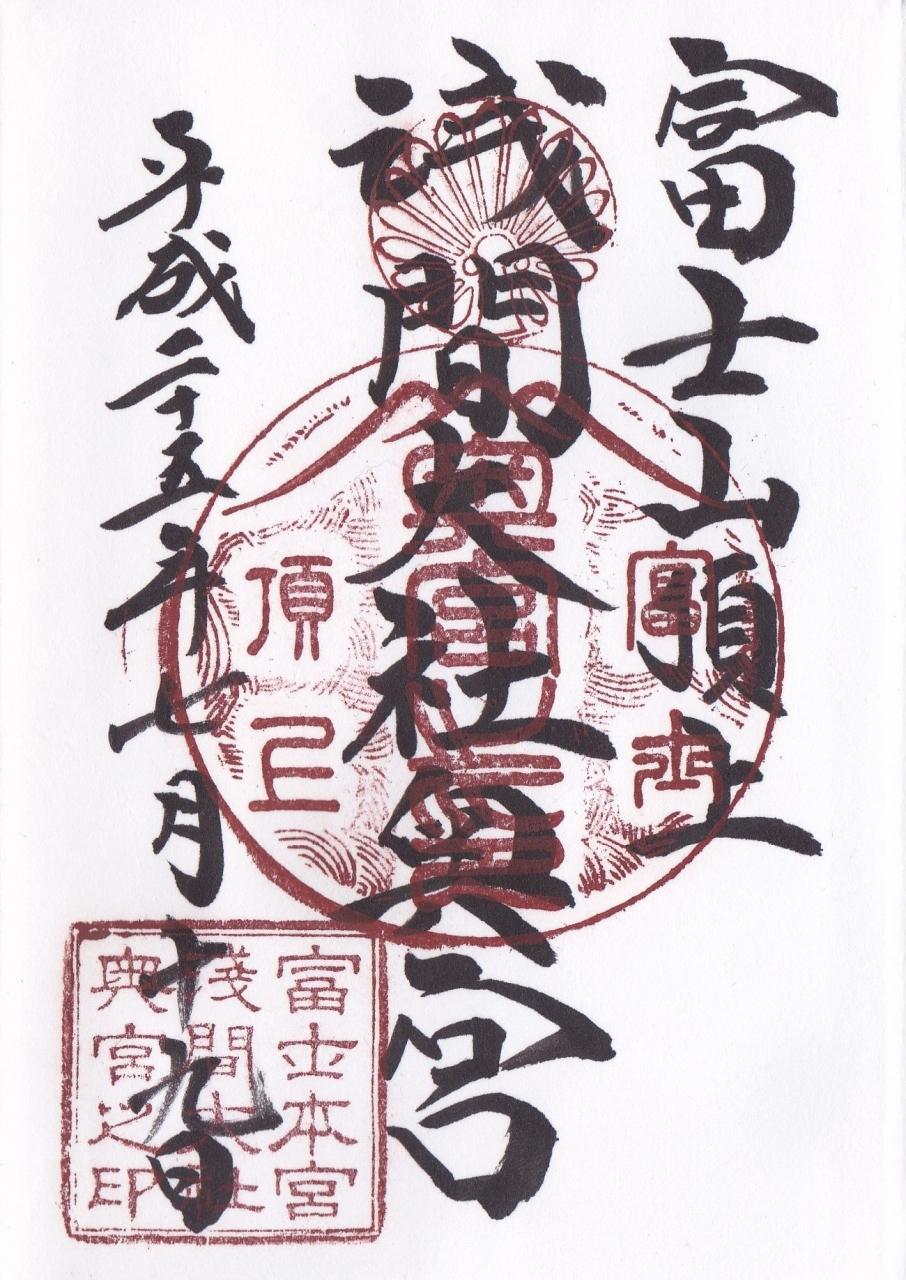 富士山頂上
浅間大社奥宮
平成二十五年七月十九日
富士
頂上
富士本宮
淺間大社
奥宮之印